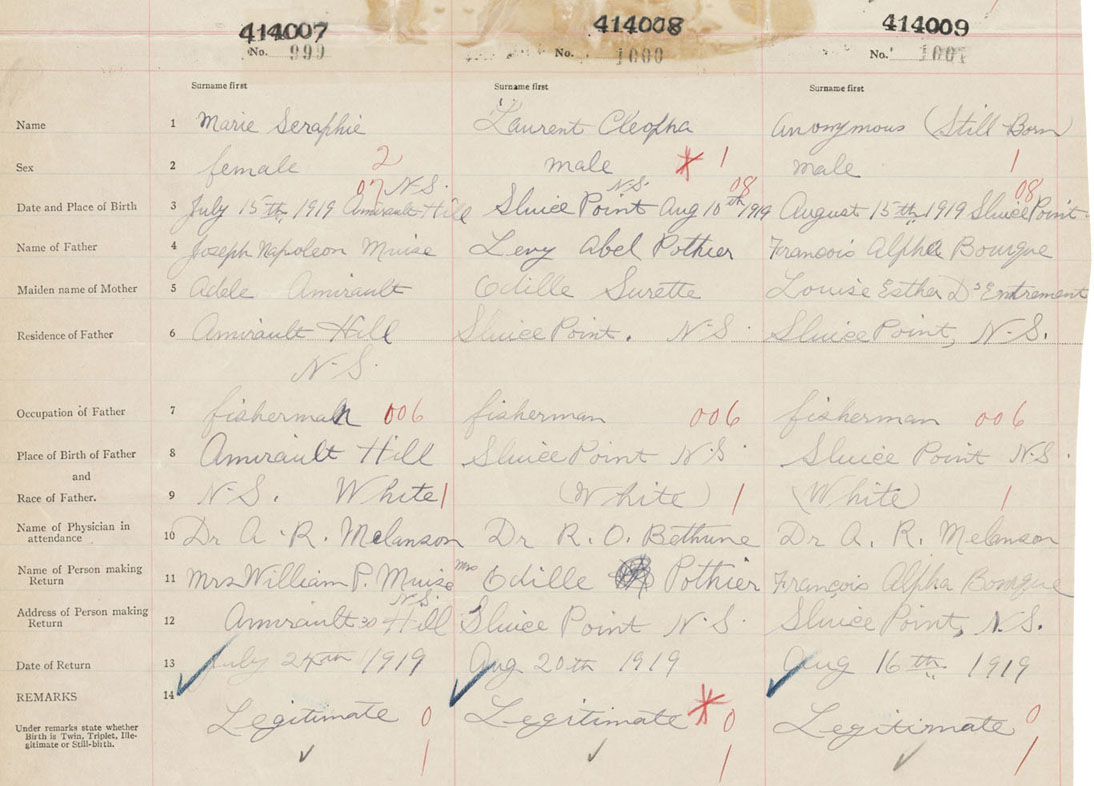 414007 414008 414009
No. 999 No. 1000 No. 1001
Surname first Surname first Surname first
Name 1 Marie Seraphie Laurent Cleopha anonymous (Still Born)
Sex 2 female 2 male * 1 male 1
07 N.S. N.S. 08 08
Date and Place of Birth 3 July 15th 1919 Amirault Hill Sluice Point Aug 10th 1919 August 15th 1919 Sluice Point
Name of Father 4 Joseph Napoleon Muise Levy Abel Pothier François Alpha Bourque
Maiden name of Mother 5 Adele Amirault Odille Surette Louise Esther D'Entremont
Residence of Father 6 Amirault Hill Sluice Point. N.S. Sluice Point, N.S.
N.S.
Occupation of Father 7 fisherman 006 fisherman 006 fisherman 006
Place of Birth of Father 8 Amirault Hill Sluice Point N.S Sluice Point N.S.
and
Race of Father. 9 N.S. White 1 (White) 1 (White) 1
Name of Physician in
attendance 10 Dr A. R. Melanson Dr R. O. Bethune Dr A. R. Melanson
Name of Person making
Return 11 Mrs William P. Muise Mrs Odille Pothier François Alpha Bourque
N.S.
Address of Person making
Return 12 Amirault Hill Sluice Point N.S. Sluice Point, N.S.
Date of Return 13 July 24th 1919 Aug 20th 1919 Aug 16th 1919
REMARKS 14
Legitimate 0 Legitimate * 0 Legitimate 0
Under remarks state whether
Birth is Twin, Triplet, Ille-
gitimate or Still-birth.
1 1 1